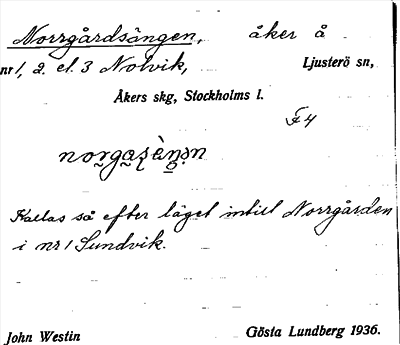 Norrgårdsängen, åker å
nr 1, 2. el. 3 Nolvik, Ljusterö sn,
Åkers skg, Stockholms l.
F4
Kallas så efter läget intill Norrgården
i nr 1 Sundvik.
John Westin Gösta Lundberg 1936.